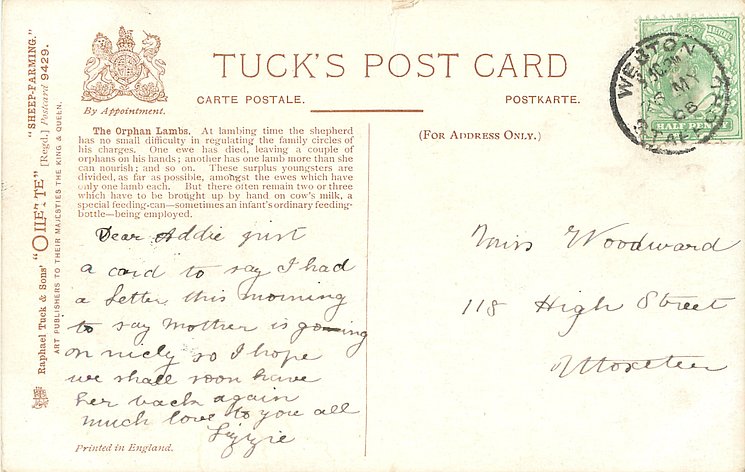 TUCK'S POST CARD
By Appointment.
CARTE POSTALE.
POSTKARTE.
(FOR ADDRESS ONLY.)
"SHEEP-FARMING."
Raphael Tuck & Sons' "OILETTE" [Regd.] Postcard 9429.
ART PUBLISHERS TO THEIR MAJESTIES THE KING & QUEEN.
The Orphan Lambs. At lambing time the shepherd
has no small difficulty in regulating the family circles of
his charges. One ewe has died, leaving a couple of
orphans on his hands; another has one lamb more than she
can nourish; and so on. These surplus youngsters are
divided, as far as possible, amongst the ewes which have
only one lamb each. But there often remain two or three
which have to be brought up by hand on cow's milk, a
special feeding-can—sometimes an infant's ordinary feeding-
bottle—being employed.
Dear Addie just
a card to say I had
a letter this morning
to say mother is going
on nicly so I hope
we shall soon have
her back again
much love to you all
Lizzie
Printed in England.
Miss Woodward
118 High Street
Uttoxeter
WESTON
MY
STAFFORD
HALF